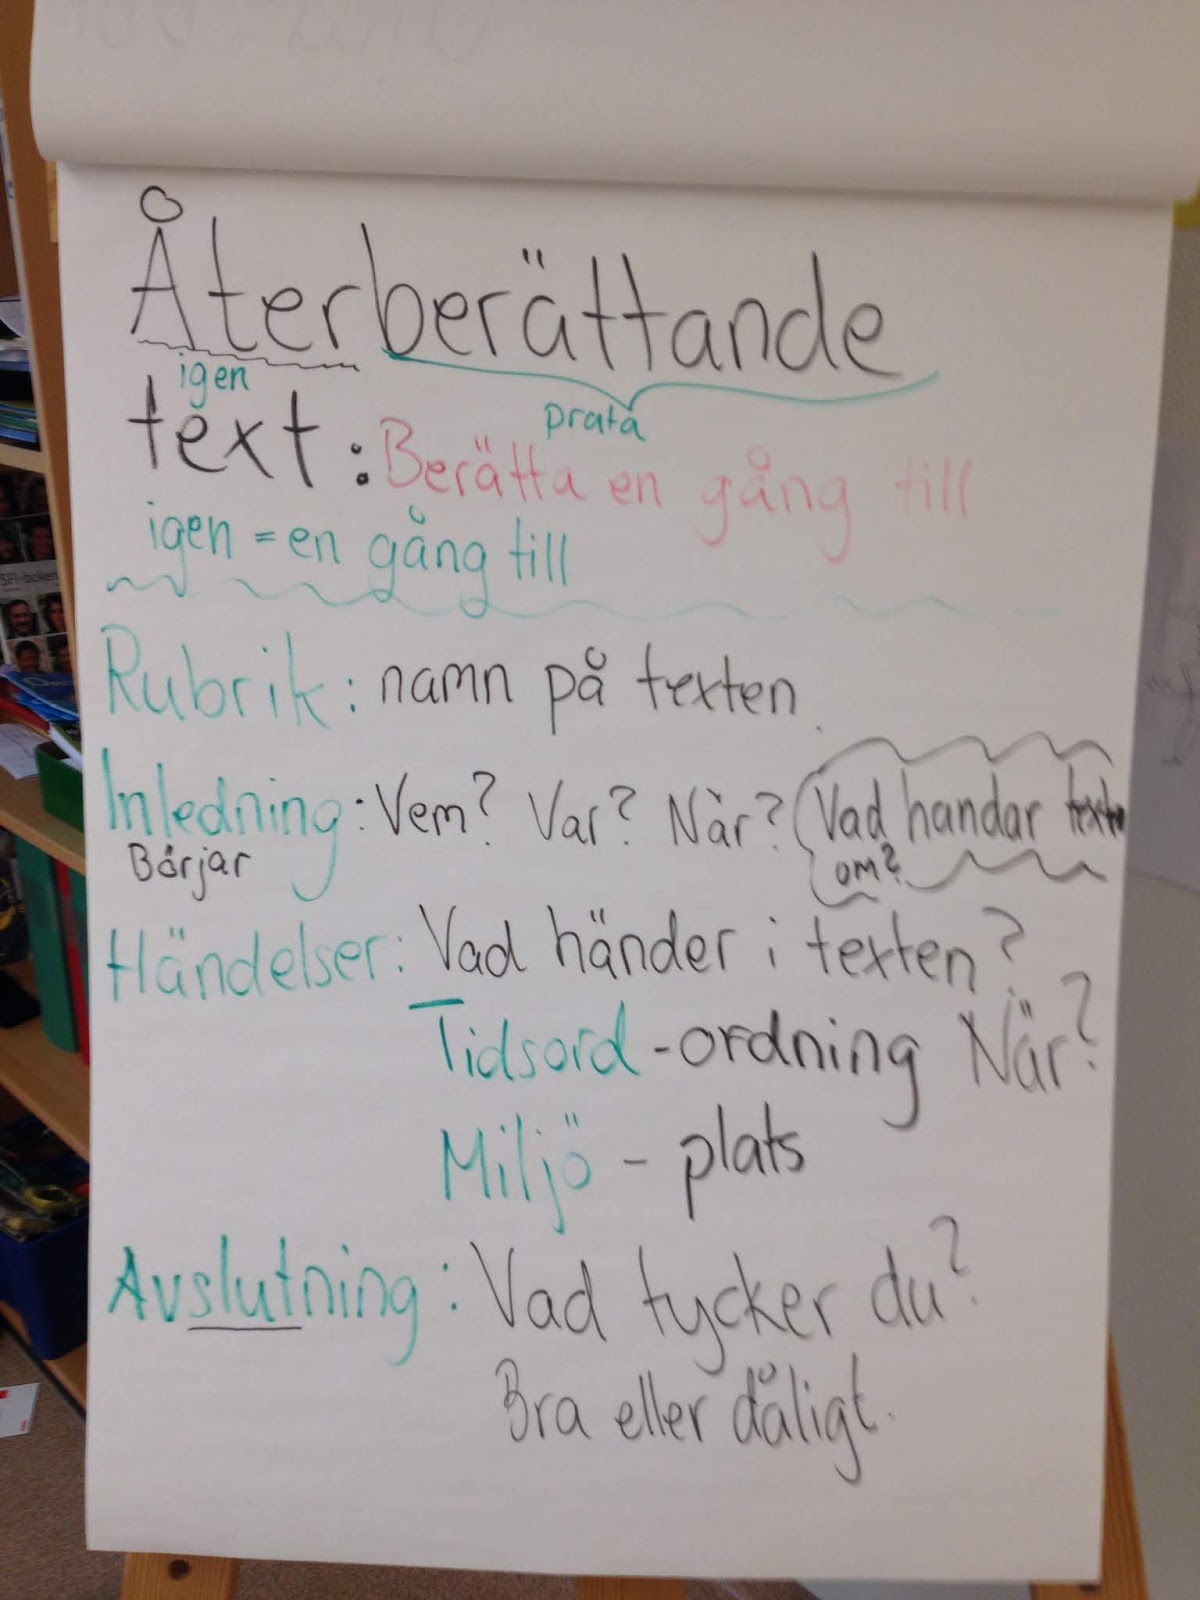 Återberättande
igen
prata
text: Berätta en gång till
igen = en gång till
Rubrik: namn på texten
Inledning: Vem? Var? När? (Vad handar texten
om?
Börjar
Händelser: Vad händer i texten?
Tidsord - ordning När?
Miljö - plats
Avslutning: Vad tycker du?
Bra eller dåligt.
SFI-boken